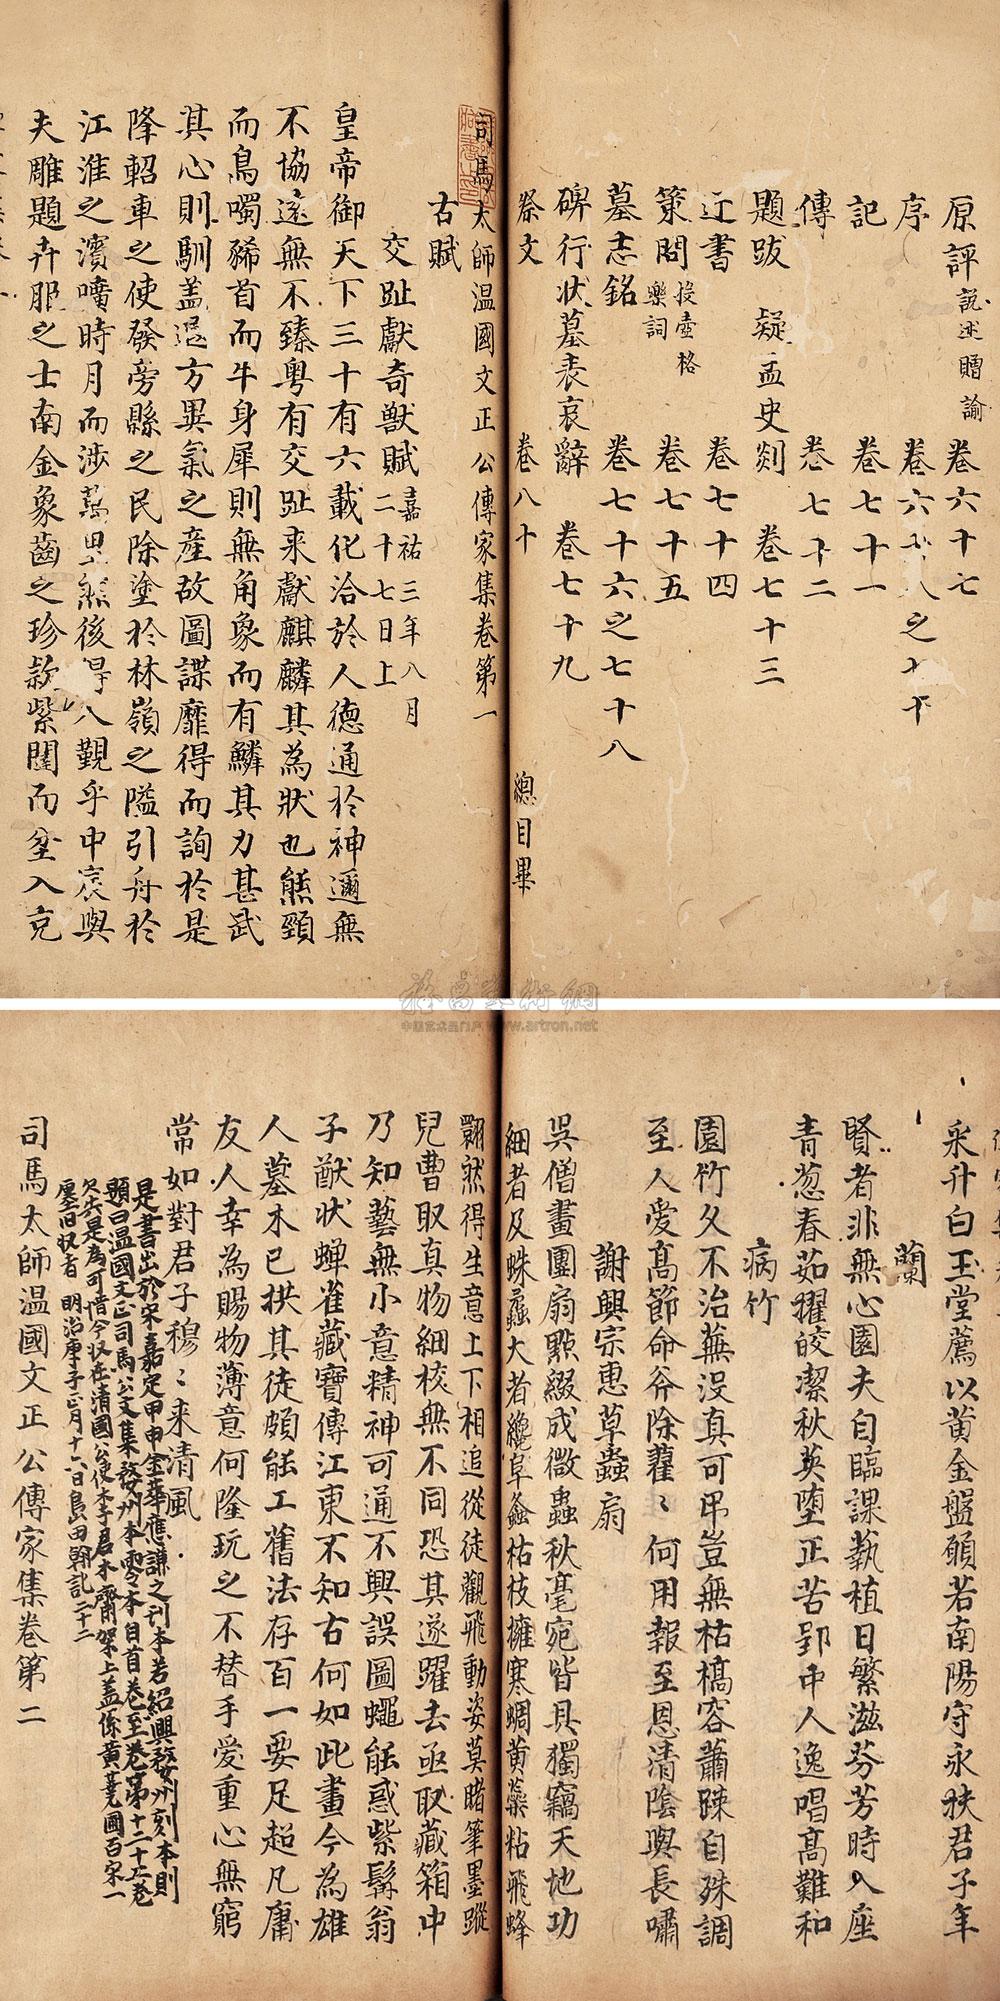 原評說述贈諭 卷六十七
序 卷六十八之七十
記 卷七十一
傳 卷七十二
題跋 疑孟史剡 卷七十三
迂書 卷七十四
策問投壺格樂詞 卷七十五
墓志銘 卷七十六之七十八
碑行状墓表哀辭 卷七十九
祭文 卷八十 總目畢
司馬太師温國文正公傳家集卷第一
古賦
交趾獻奇獸賦嘉祐三年八月二十七日上
皇帝御天下三十有六載化洽於人德通於神邇無
不協遠無不臻粤有交趾来獻麒麟其為狀也熊頸
而鳥噣豨首而牛身犀則無角象而有鱗其力甚武
其心則馴盖遐方異氣之産故圖諜靡得而詢於是
降軺車之使發旁縣之民除塗於林嶺之隘引舟於
江淮之濱曠時月而涉萬里然後得入覲乎中宸與
夫雕題卉服之士南金象齒之珍款紫闥而坌入克
采升白玉堂薦以黄金盤願若南陽守永扶君子年
蘭
賢者非無心園夫自臨課執植日繁滋芬芳時入座
青葱春茹擢皎潔秋英堕正苦郢中人逸唱高難和
病竹
園竹久不治蕪没真可弔豈無枯槁容蕭踈自殊調
至人愛高節命斧除藋〻何用報至恩清陰與長嘯
謝興宗惠草蟲扇
吳僧畫團扇點綴成微蟲秋毫宛皆具獨竊天地功
細者及蛛蝨大者纔阜螽枯枝擁寒蜩黄蘂粘飛蜂
翾然得生意上下相追從徒觀飛動姿莫睹筆墨蹤
兒曹取真物細核無不同恐其遂躍去亟取藏箱中
乃知藝無小意精神可通不興誤圖蠅能惑紫髯翁
子猷状蝉雀藏寶傳江東不知古何如此畫今為雄
人墓木已拱其徒頗能工舊法存百一要足超凡庸
友人幸為賜物薄意何隆玩之不替手愛重心無窮
常如對君子穆〻来清風
是書出於宋嘉定甲申金華應謙之刊本若紹興婺州刻本則
題曰温國文正司馬公文集婺州本零本目首卷至卷第十二十五卷
欠失是為可惜今収在清國公使李君木齋架上盖係黄蕘圃百宋一
廛旧収者 明治庚子正月十六日島田翰記二十二
司馬太師温國文正公傳家集卷第二
中国艺术品门户 www.artron.net